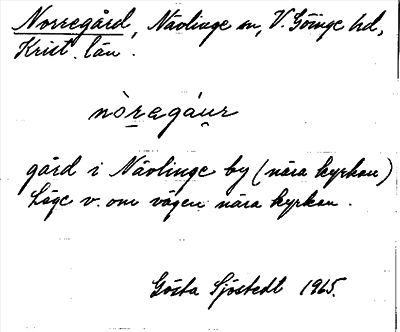 Norregård, Nävlinge sn, V. Göinge hd,
Krist. län.
nòregáur
gård i Nävlinge by (nära kyrkan)
Läge v. om vägen nära kyrkan.
Gösta Sjöstedt 1965.